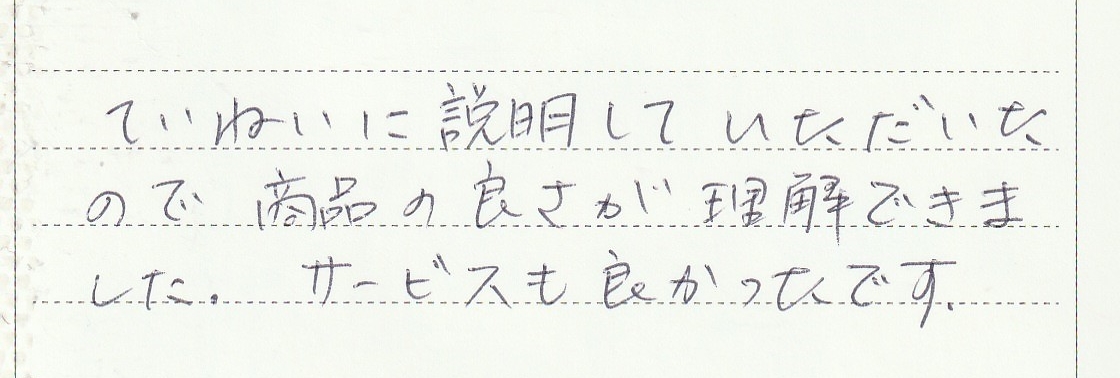 ていねいに説明していただいた
ので商品の良さが理解できま
した. サービスも良かったです.